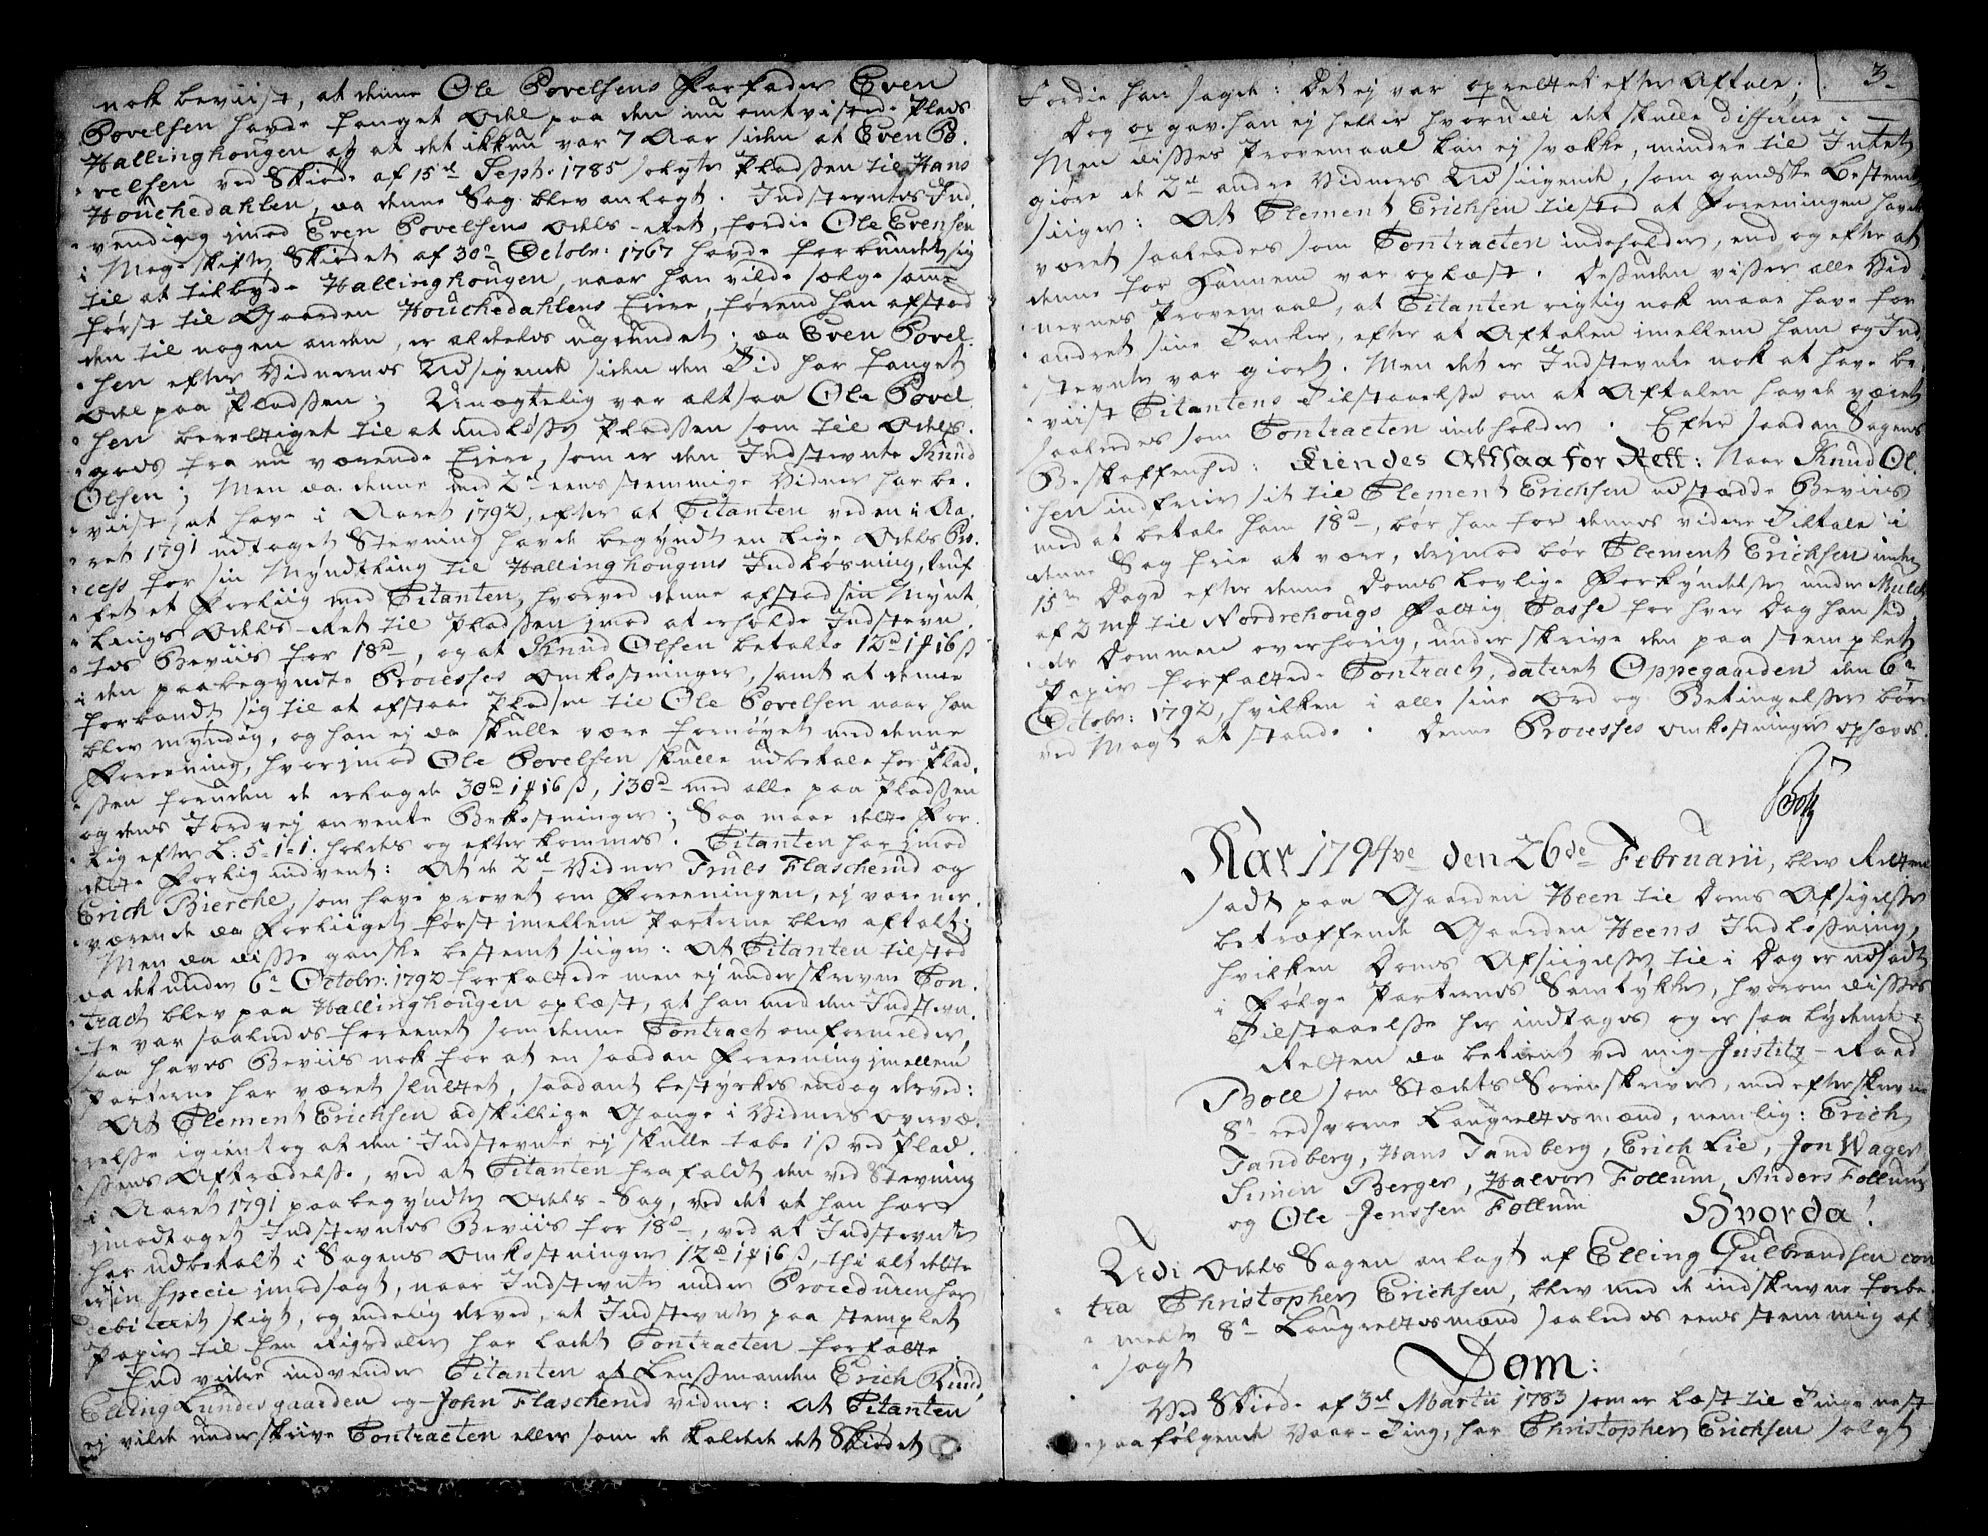 nok beviist, at denne Ole Povelsens Forfader Even
Povelsen havde fanget Odel paa den nu omtvistede Plads
Hallinghougen og at det ikkun var 7 Aar siden at Even Po-
velsen ved Skiøde af 15d Septr. 1785 solgte Pladsen til Hans
Houchedahlen, da denne Sag blev anlagt. Indstevntes Ind-
vending imod Even Povelsens Odels-Ret, fordie Ole Evensen
i Mage-Skifte Skiødet af 30te Octobr: 1767 havde forbundet sig
til at tilbyde Hallinghougen, naar han vilde sælge samme
først til Gaarden Houchedahlens Eiere, førend han afstod
den til nogen anden, er aldeles ugrundet; da Even Povel-
sen efter Vidnernes Udsigende siden den Tid har fanget
Odel paa Pladsen; Unægtelig var altsaa Ole Povel-
sen berettiget til at indløse Pladsen som til Odels-
gods fra nu værende Eiere, som er den Indstevnte Knud
Olsen; Men da denne med 2de eenstemmige Vidner har be-
viist, at have i Aaret 1792, efter at Citanten ved en i Aa-
ret 1791 udtaget Stevning havde begyndt en lige Odels Pro-
cess for sin Myndtling til Hallinghougens Indløsning, truf-
fet et Forliig med Citanten, hvorved denne afstod sin Mynt-
lings Odels-Ret til Pladsen imod at erholde Indstevn-
tes Beviis for 18rd, og at Knud Olsen betalte 12rd 1 ort 16 s
i den paabegyndte Processes Omkostninger, samt at denne
forbandt sig til at afstaae Pladsen til Ole Povelsen naar han
blev myndig, og han ej da skulle være fornøyet med denne
Foreening, hvorimod Ole Povelsen skulle udbetale for Plad-
sen foruden de erlagde 30rd 1 ort 16 s, 130rd med alle paa Pladsen
og dens Jordvej anvente Bekostninger; Saa maae dette For-
lig efter L: 5-1-1. holdes og efterkommes. Citanten har imod
dette Forlig indvent: At de 2de Vidner Truls Flascherud og
Erich Bierche, som have provet om Foreeningen, ej vare nær-
værende da Forliiget først imellem Parterne blev aftalt;
Men da disse ganske bestemt siiger: At Citanten tilstod
da det under 6te Octobr: 1792 forfattede men ej underskrevne Con-
tract blev paa Hallinghougen oplæst, at han med den Indstevn-
te var saaledes foreenet som denne Contract omformelder,
saa haves Beviis nok for at en saadan Foreening imellem
Parterne har været sluttet, saadant bestyrkes endog derved:
At Clement Erichsen adskillige Gange i Vidners Overvæ-
relse igientog at den Indstevnte ej skulle tabe 1 s ved Plad-
sens Aftrædelse, ved at Citanten frafaldt den ved Stevning
i Aaret 1791 paabegyndte Odels-Sag, ved det at han har
imodtaget Indstevntes Beviis for 18rd, ved at Indstevnte
har udbetalt i Sagens Omkostninger 12rd 1 ort 16 s, thi alt dette
er in Specie imodsagt, naar Indstevnte under Proceduren har
debiteret sligt, og endelig derved, at Indstevnte paa stemplet
Papir til een Rigsdaler har ladet Contracten forfatte.
End videre indvender Citanten at Lensmanden Erich Ruud,
Elling Lundesgaarden og John Flascherud vidner: At Citanten
ej vilde underskrive Contracten eller som de kaldede det Skiødet
3.
Fordie han sagde: Det ej var oprettet efter Aftale;
Dog opgav han ej heller hvorudi det skulle differere.
Men disses Provemaal kan ej svække, mindre til Intet
giøre de 2de andre Vidners Udsiigende, som gandske bestemt
siiger: At Clement Erichsen tilstod at Foreeningen havde
været saaledes som Contracten indeholder, end og efter at
denne for hannem var oplæst. Desuden viser alle Vid-
nernes Provemaal, at Citanten rigtig nok maae have for-
andret sine Tanker, efter at Aftalen imellem ham og Ind-
stevnte var giort. Men det er Indstevnte nok at have be-
viist Citantens Tilstaaelse om at Aftalen havde været
saaledes som Contracten indeholder. Efter saadan Sagens
Beskaffenhed: Kiendes Altsaa for Rett: Naar Knud Ol-
sen indfrier sit til Clement Erichsen udstædde Beviis
med at betale ham 18rd, bør han for dennes videre Tiltale i
denne Sag frie at være, derimod bør Clement Erichsen inden
15ten Dage efter denne Doms lovlige Forkyndelse under Mulct
af 2 mk til Nordrehougs Fattig Casse for hver Dag han sid-
der Dommen overhørig, underskrive den paa stemplet
Papir forfattede Contract, dateret Oppegaarden den 6te
Octobr: 1792, hvilken i alle sine Ord og Betingelser bør
ved Magt at stande. Denne Processes Omkostninger ophæves.
Boll
Aar 1794ve den 26de Februarii, blev Retten
sadt paa Gaarden Heen til Doms Afsigelse
betræffende Gaarden Heens Indløsning,
hvilken Doms Afsiigelse til i Dag er udsadt
i Følge Parternes Samtykke, hvorom disses
Tilstaaelse her indtages og er saa lydende:
Retten da betient ved mig Justitz-Raad
Boll som Stædets Sorenskriver, med efterskrevne
8te edsvorne Laugrettesmænd, nemlig: Erich
Tandberg, Hans Tandberg, Erich Lie, Jon Wager,
Simen Berger, Halvor Follum, Anders Follum
og Ole Jenssen Follum Hvorda!
Udi Odels Sagen anlagt af Elling Gulbrandsen con-
tra Christopher Erichsen, blev med de indskrevne forbe-
meldte 8te Laugrettesmænd saaledes eenstemmig af-
sagt
Dom:
Ved Skiøde af 3de Martii 1783 som er læst til Tinge næst
paafølgende Vaar-Ting, har Christopher Erichsen solgt